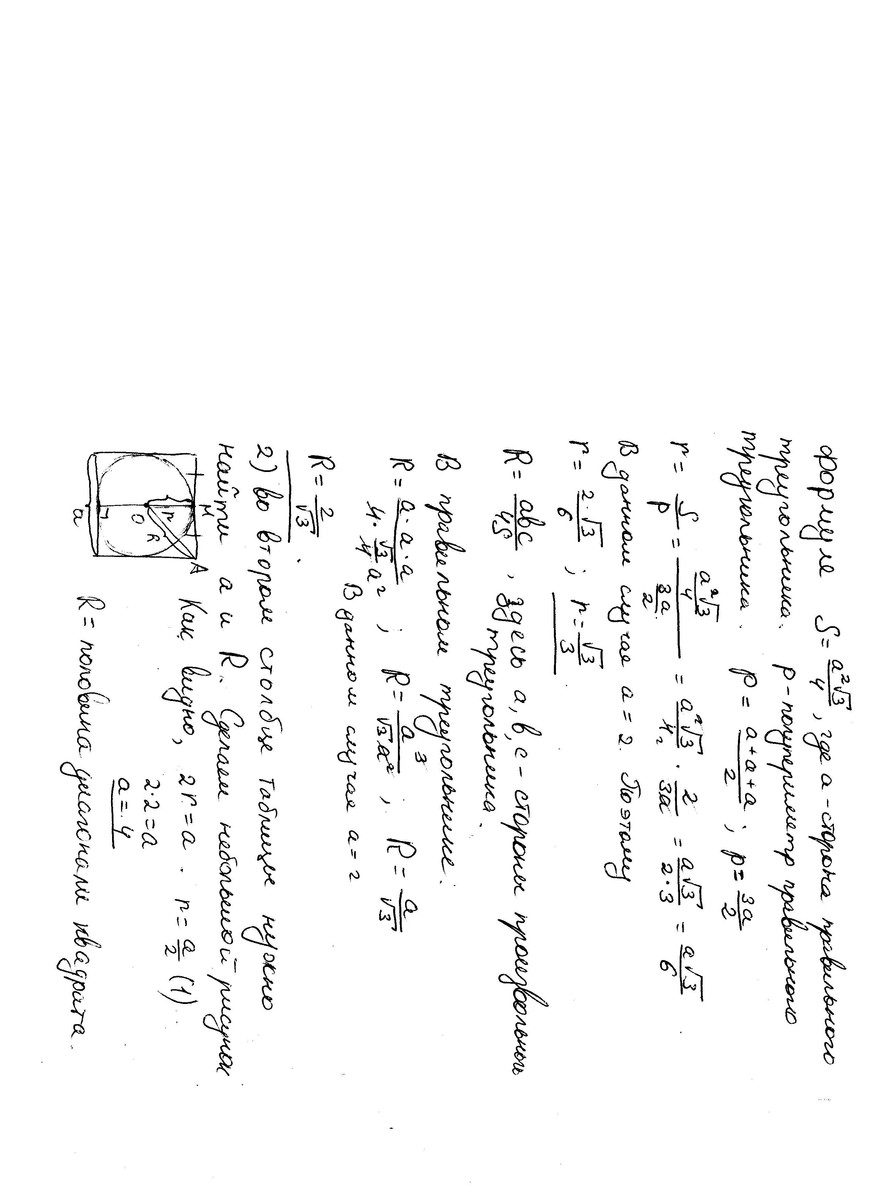 формуле S = a²√3/4, где a - сторона правильного
треугольника. p - полупериметр правильного
треугольника. p = (a+a+a)/2 ; p = 3a/2
r = S/p = (a²√3/4)/(3a/2) = a²√3/4₂ · 2/3a = a√3/2·3 = a√3/6
В данном случае a = 2. Поэтому
r = 2·√3/6 ; r = √3/3 .
R = abc/4S , здесь a, b, c - стороны произвольного
треугольника.
В правильном треугольнике:
R = a·a·a/(4·√3/4 a²) ; R = a³/√3a² ; R = a/√3
В данном случае a = 2
R = 2/√3 .
2) во втором столбце таблицы нужно
найти a и R. Сделаем небольшой рисунок
A
M
r
R
O
a
Как видно, 2r = a . r = a/2 (1)
2·2 = a
a = 4
R = половина диагонали квадрата.